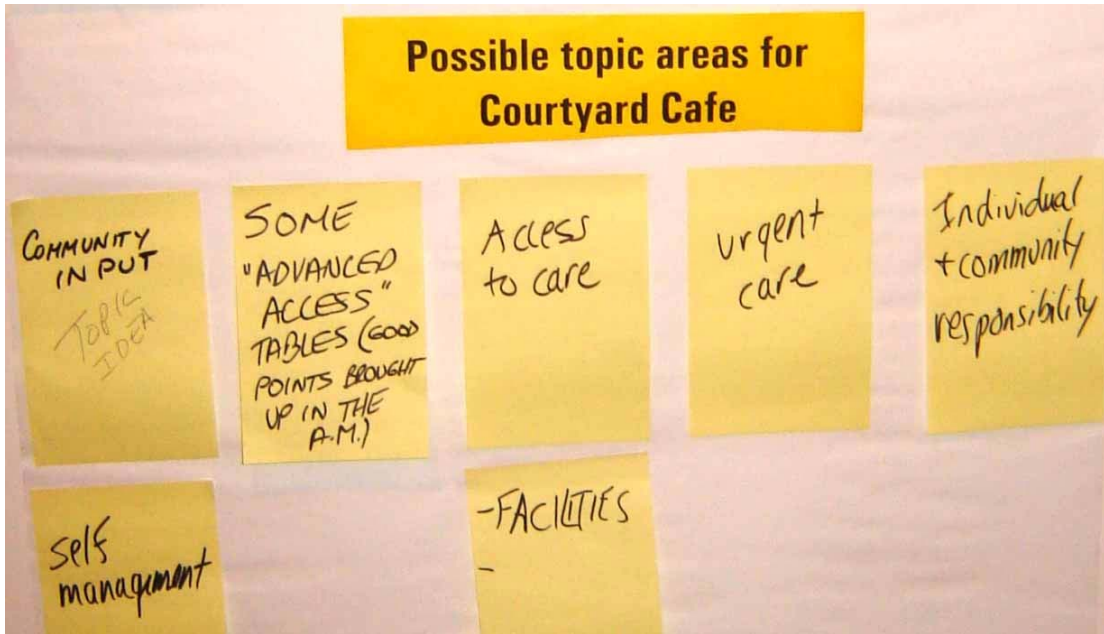 Possible topic areas for
Courtyard Cafe
COMMUNITY
IN PUT
TOPIC
IDEA
SOME
"ADVANCED
ACCESS"
TABLES (GOOD
POINTS BROUGHT
UP IN THE
A.M.)
Access
to care
urgent
care
Individual
+ community
responsibility
self
management
-FACILITIES
-